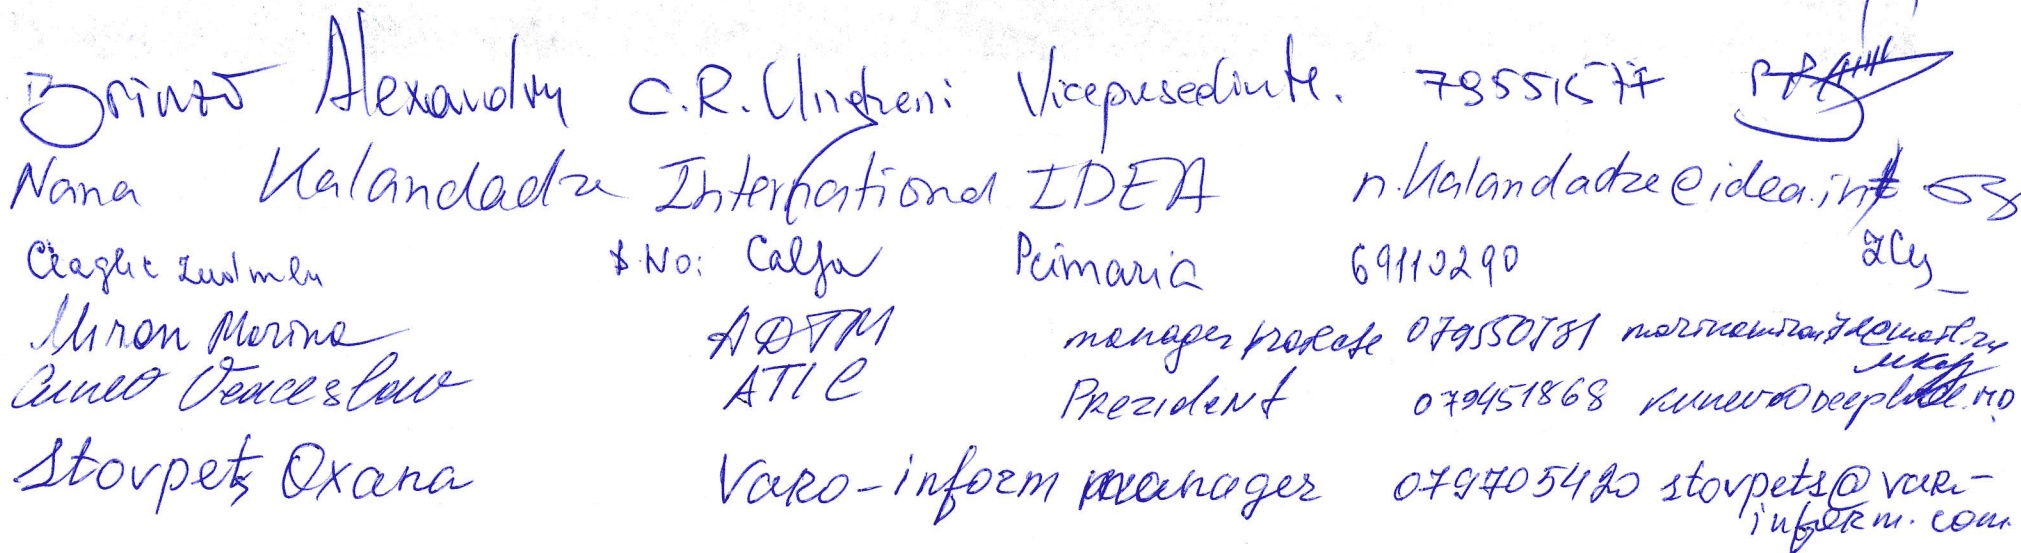 Brinză Alexandru C.R. Ungheni Vicepresedinte. 79551577
Nana Kalandadze International IDEA n.kalandadze@idea.int
No: Calfa Primaria 69110290
Miron Marina ADTM manager proiecte 079550781
Cunev Veaceslav ATIC Prezident 079451868
Stovpeț Oxana Varo-inform manager 079705420 stovpets@varo-
inform.com